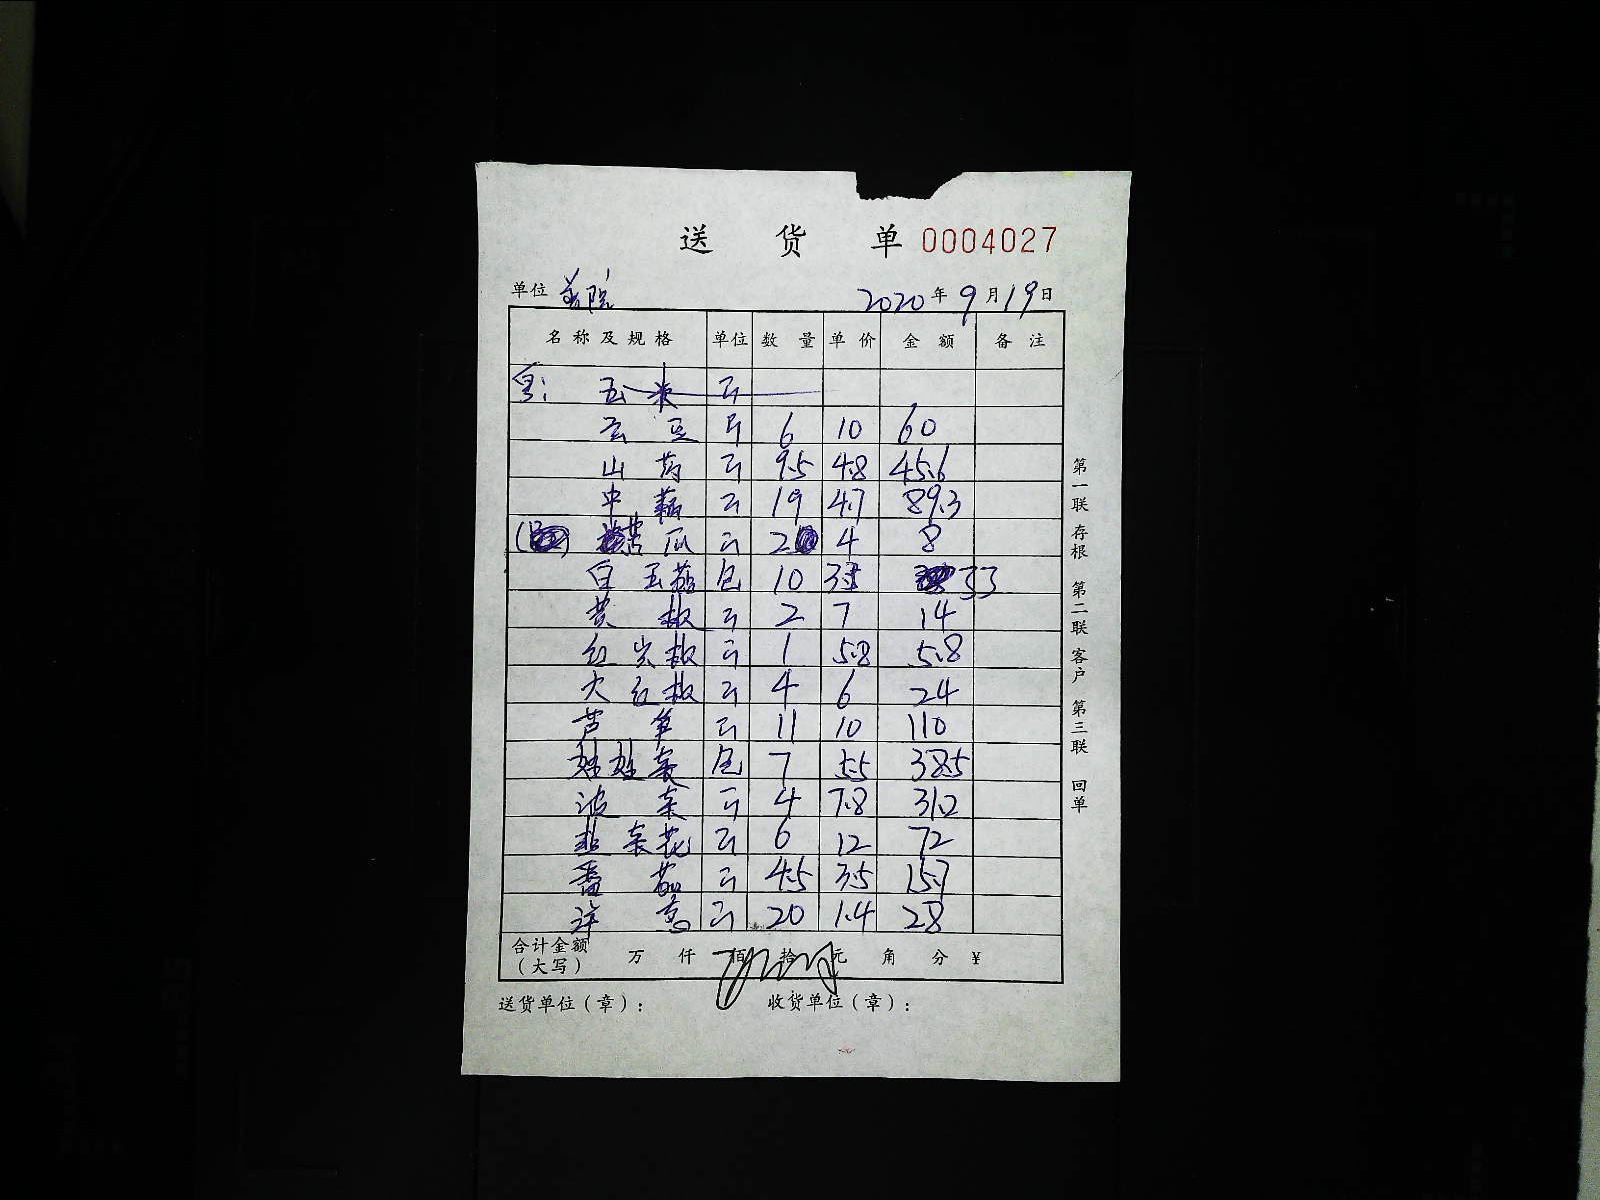 送 货 单 0004027
单位 2020 年 9 月 19 日
名称及规格 单位 数量 单价 金额 备注
玉米 斤
云豆 斤 6 10 60
山药 斤 9.5 4.8 45.6
中藕 斤 19 4.7 89.3
苦瓜 斤 2 4 8
白玉菇 包 10 33
黄椒 斤 2 7 14
红尖椒 斤 1 5.8 5.8
大红椒 斤 4 6 24
芦笋 斤 11 10 110
娃娃菜 包 7 5.5 38.5
波菜 斤 4 7.8 31.2
韭菜花 斤 6 12 72
番茄 斤 4.5 3.5 15.7
洋葱 斤 20 1.4 28
合计金额（大写） 万 仟 佰 拾 元 角 分 ¥
送货单位（章）： 收货单位（章）：
第一联 存根 第二联 客户 第三联 回单